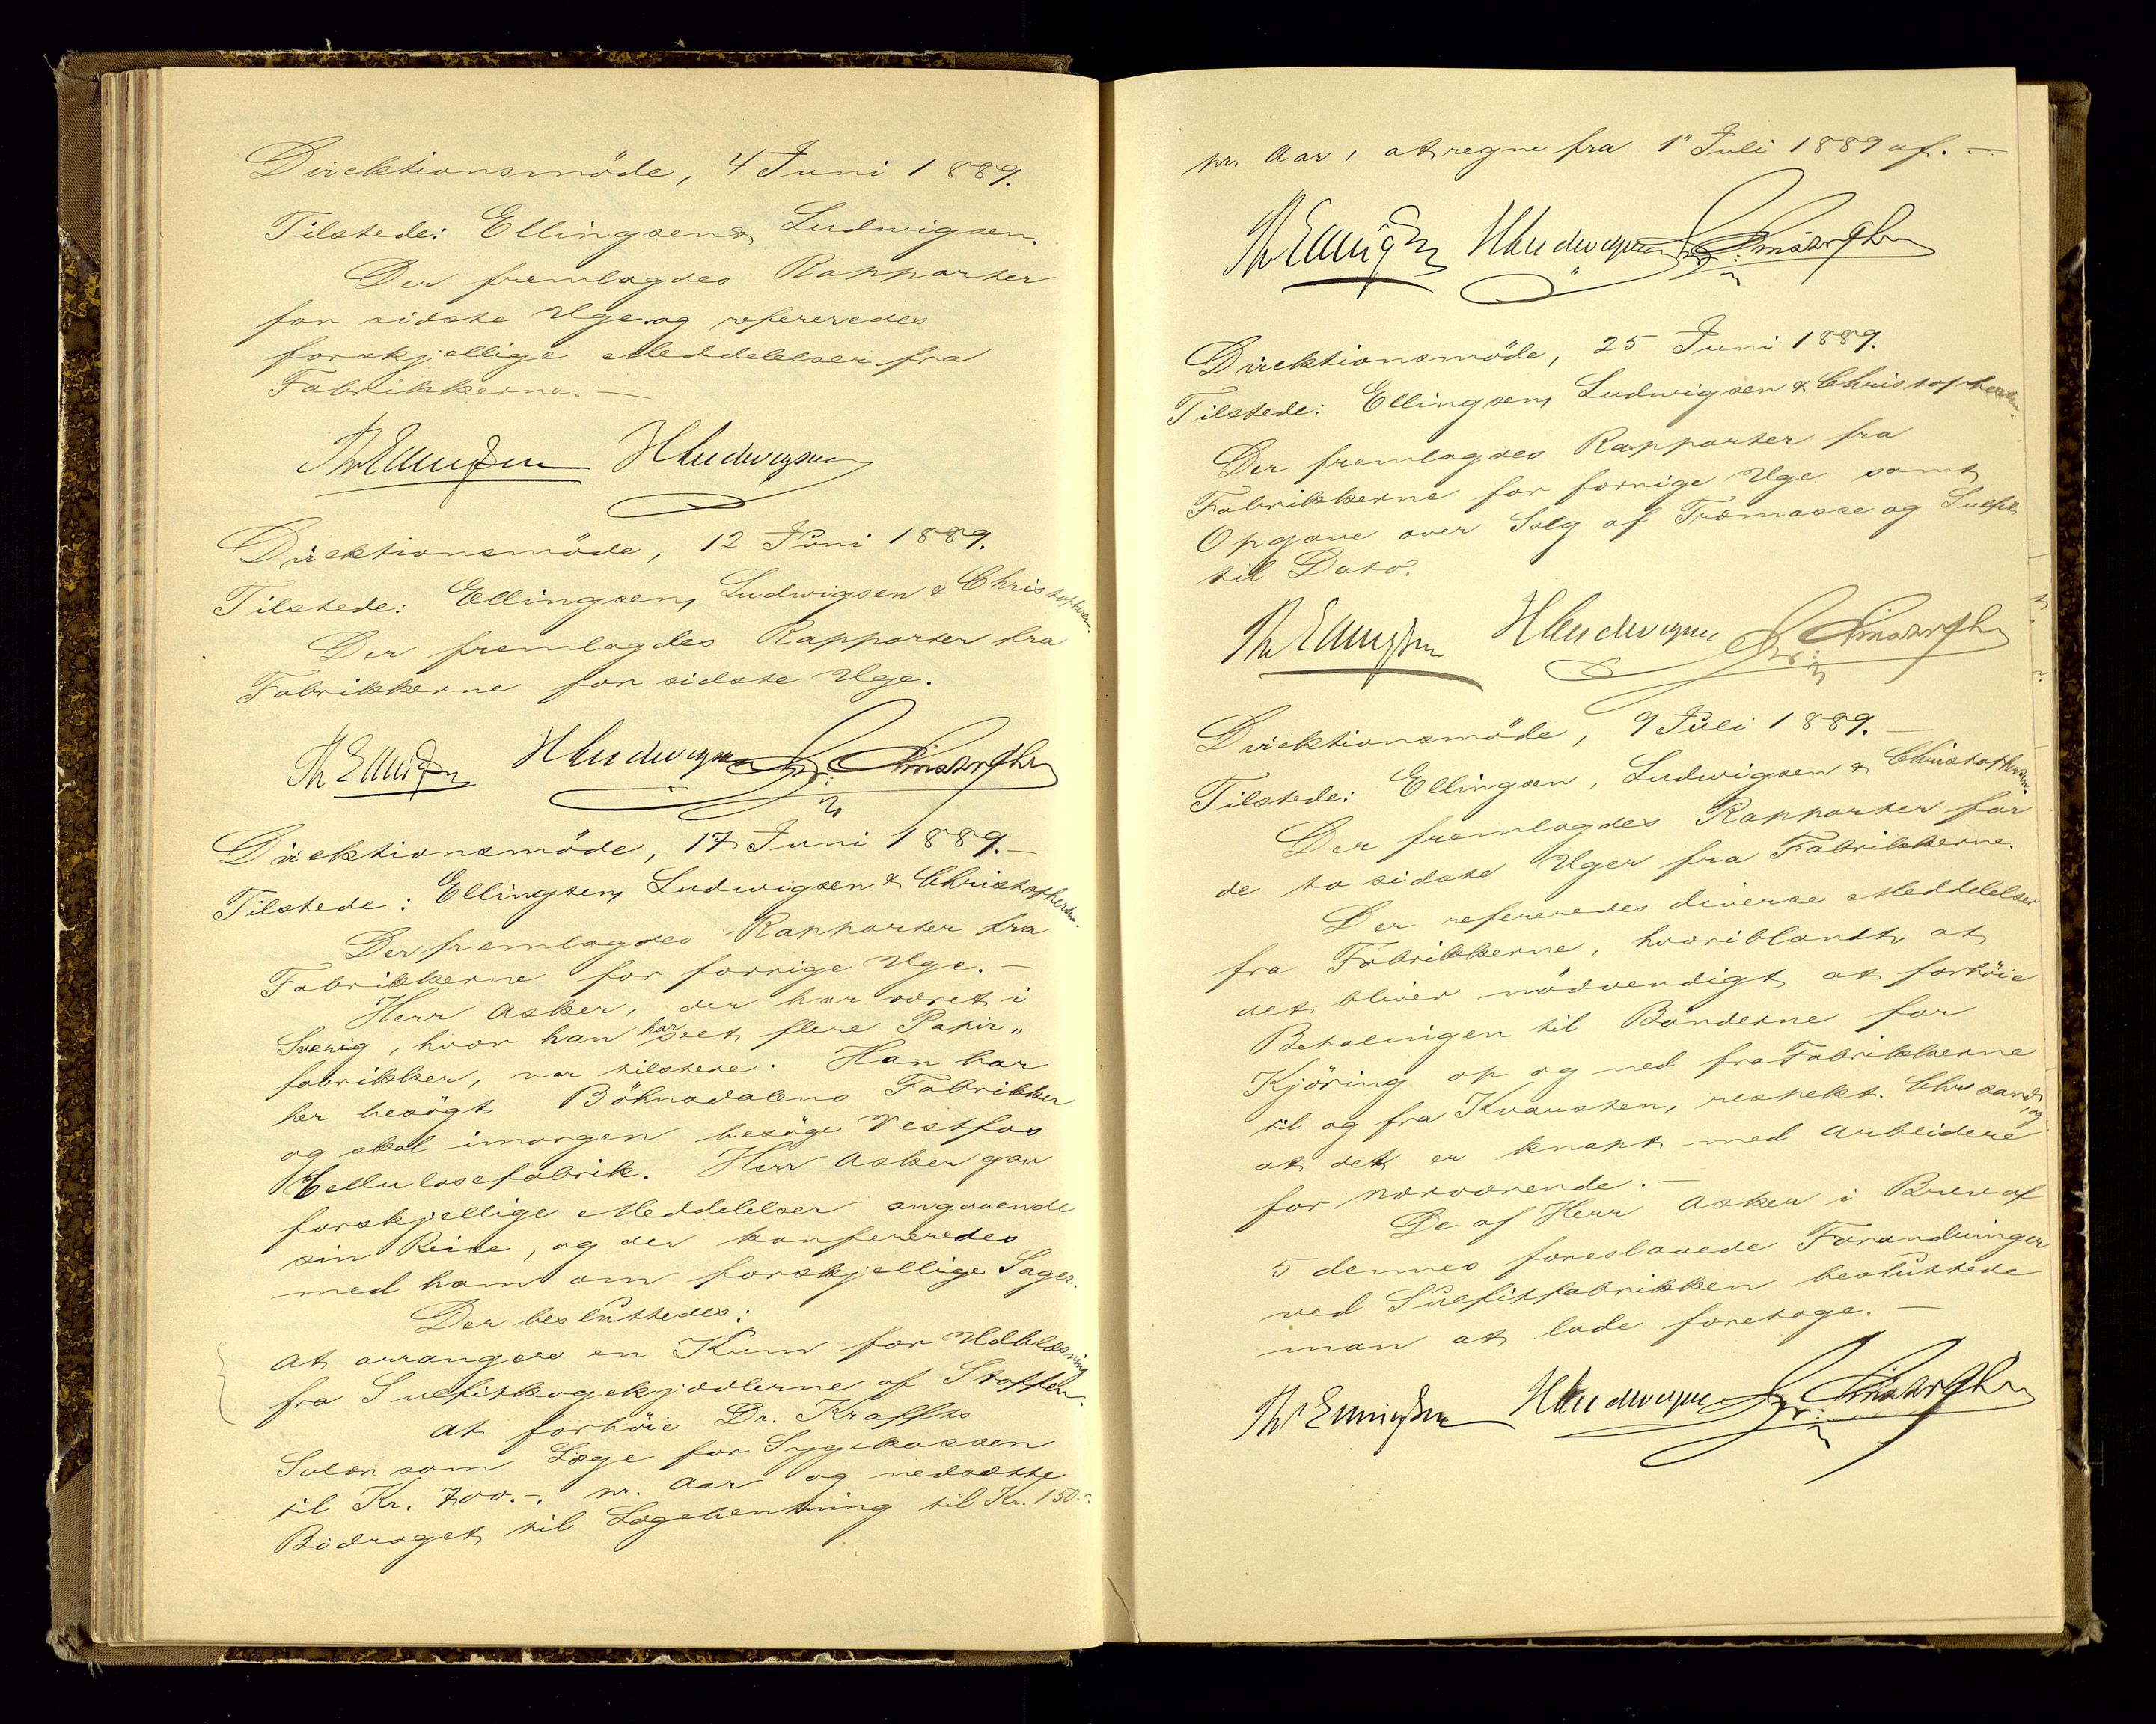 Direktionsmöde, 4 Juni 1889.
Tilstede: Ellingsen & Ludwigsen.
Der fremlagdes Rapporter
for sidste Uge og refereredes
forskjellige Meddelelser fra
Fabrikkerne. —
Th Ellingsen HLudwigsen
Direktionsmöde, 12 Juni 1889.
Tilstede: Ellingsen, Ludwigsen & Christophersen.
Der fremlagdes Rapporter fra
Fabrikkerne for sidste Uge.
Th Ellingsen HLudwigsen
Direktionsmöde, 17 Juni 1889. —
Tilstede: Ellingsen, Ludwigsen & Christophersen.
Der fremlagdes Rapporter fra
Fabrikkerne for forrige Uge. —
Herr Asker, der har været i
Sverig, hvor han har seet flere Papir„
fabrikker, var tilstede. Han har
her besögt Böhnsdalens Fabrikker
og skal imorgen besöge Vestfos
Cellulosefabrik. Herr Asker gav
forskjellige Meddelelser angaaende
sin Reise, og der konfereredes
med ham om forskjellige Sager.
Der besluttedes:
at arrangere en Kum for Udblæsning
fra Sulfitkogekjedlerne af Stoffen.
at forhöie Dr. Kraffts
Salær som Læge for Sygekassen
til Kr. 700.-. pr. Aar og nedsætte
Bidraget til Lægehentning til Kr. 150.-.
pr. Aar, at regne fra 1' Juli 1889 af. —
Th Ellingsen HLudwigsen
Direktionsmöde, 25 Juni 1889.
Tilstede: Ellingsen, Ludwigsen & Christophersen.
Der fremlagdes Rapporter fra
Fabrikkerne for forrige Uge samt
Opgave over Salg af Træmasse og Sulfit
til Dato.
Th Ellingsen HLudwigsen
Direktionsmöde, 9 Juli 1889. —
Tilstede: Ellingsen, Ludwigsen & Christophersen.
Der fremlagdes Rapporter for
de to sidste Uger fra Fabrikkerne.
Der refereredes diverse Meddelelser
fra Fabrikkerne, hvoriblandt, at
det bliver nödvendigt at forhöie
Betalingen til Bönderne for
Kjöring op og ned fra Fabrikkerne
til og fra Kvarsten, respekt. Chrsand, og
at det er knapt med Arbeidere
for nærværende. —
De af Herr Asker i Brev af
5 dennes foreslaaede Forandringer
ved Sulfitfabrikken besluttede
man at lade foretage. —
Th Ellingsen HLudwigsen